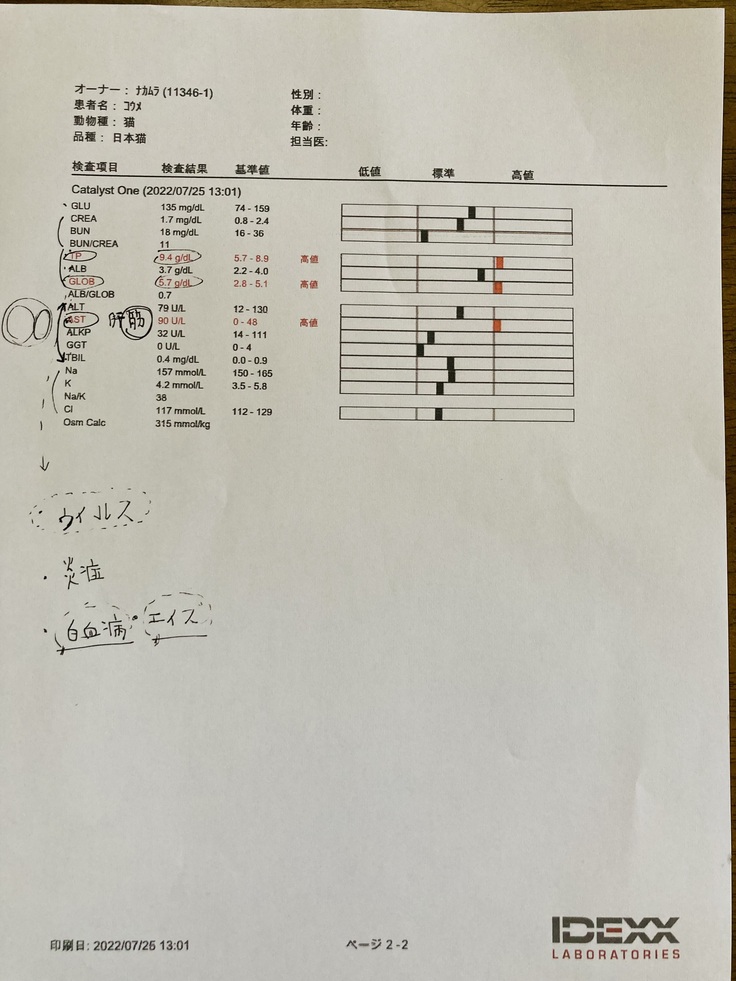 オーナー： ﾅｶﾑﾗ (11346-1) 性別：
患者名： ｺｳﾒ 体重：
動物種： 猫 年齢：
品種： 日本猫 担当医:
検査項目 検査結果 基準値 低値 標準 高値
Catalyst One (2022/07/25 13:01)
GLU 135 mg/dL 74 - 159
CREA 1.7 mg/dL 0.8 - 2.4
BUN 18 mg/dL 16 - 36
BUN/CREA 11
TP 9.4 g/dL 5.7 - 8.9 高値
ALB 3.7 g/dL 2.2 - 4.0
GLOB 5.7 g/dL 2.8 - 5.1 高値
ALB/GLOB 0.7
ALT 79 U/L 12 - 130
AST 肝 筋 90 U/L 0 - 48 高値
ALKP 32 U/L 14 - 111
GGT 0 U/L 0 - 4
TBIL 0.4 mg/dL 0.0 - 0.9
Na 157 mmol/L 150 - 165
K 4.2 mmol/L 3.5 - 5.8
Na/K 38
Cl 117 mmol/L 112 - 129
Osm Calc 315 mmol/kg
・ウイルス
・炎症
・白血病・エイズ
印刷日: 2022/07/25 13:01 ページ 2 - 2
IDEXX
LABORATORIES